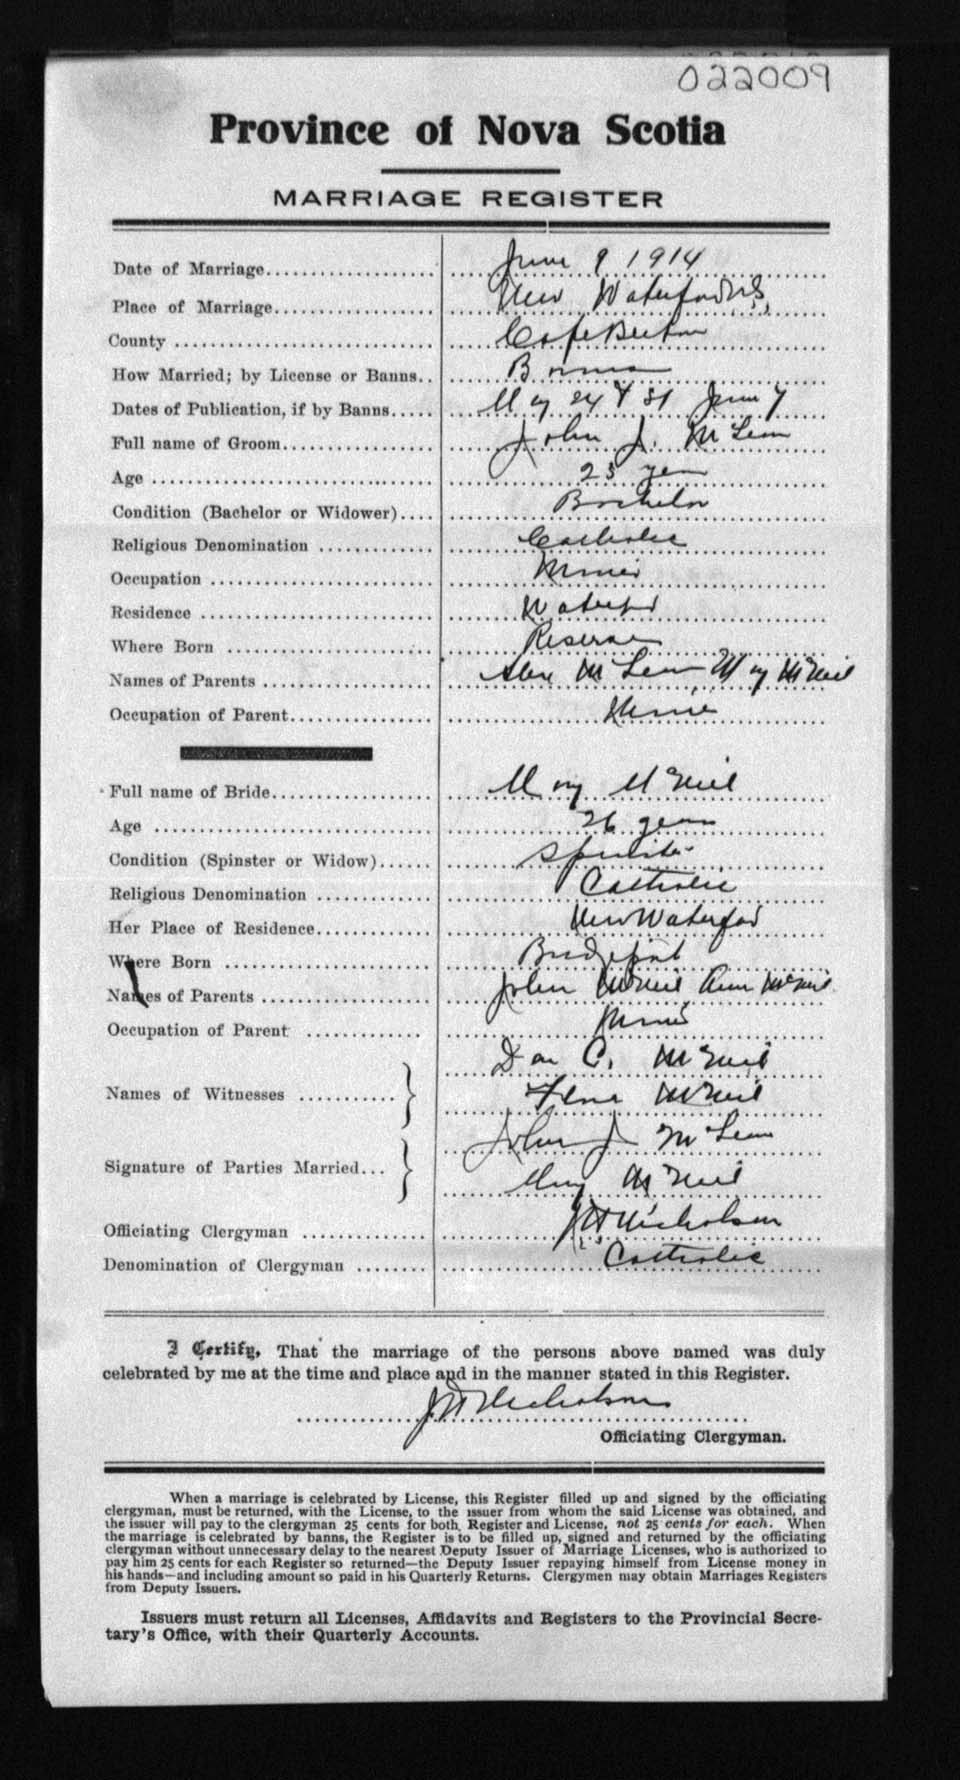 022009
Province of Nova Scotia
MARRIAGE REGISTER
Date of Marriage.................... June 9 1914
Place of Marriage................... New Waterford N.S.,
County .............................. Cape Breton
How Married; by License or Banns.. Banns
Dates of Publication, if by Banns..... May 24 & 31 June 7
Full name of Groom................. John J. McLean
Age ................................. 23 years
Condition (Bachelor or Widower).... Bachelor
Religious Denomination ............. Catholic
Occupation ......................... Miner
Residence .......................... Waterford
Where Born ....................... Reserve
Names of Parents ................... Alex McLean May McNeil
Occupation of Parent................ Miner
Full name of Bride.................. Mary McNeil
Age ............................... 26 years
Condition (Spinster or Widow)...... Spinster
Religious Denomination ............. Catholic
Her Place of Residence............. New Waterford
Where Born ....................... Bridgeport
Names of Parents ................... John McNeil Ann McNeil
Occupation of Parent ............. Miner
Names of Witnesses ........... Dan C. McNeil
McNeil
Signature of Parties Married... John J McLean
Mary McNeil
Officiating Clergyman .............. Nicholson
Denomination of Clergyman ........ Catholic
I Certify, That the marriage of the persons above named was duly
celebrated by me at the time and place and in the manner stated in this Register.
Nicholson
Officiating Clergyman.
When a marriage is celebrated by License, this Register filled up and signed by the officiating
clergyman, must be returned, with the License, to the issuer from whom the said License was obtained, and
the issuer will pay to the clergyman 25 cents for both Register and License, not 25 cents for each. When
the marriage is celebrated by banns, the Register is to be filled up, signed and returned by the officiating
clergyman without unnecessary delay to the nearest Deputy Issuer of Marriage Licenses, who is authorized to
pay him 25 cents for each Register so returned—the Deputy Issuer repaying himself from License money in
his hands—and including amount so paid in his Quarterly Returns. Clergymen may obtain Marriages Registers
from Deputy Issuers.
Issuers must return all Licenses, Affidavits and Registers to the Provincial Secre-
tary's Office, with their Quarterly Accounts.